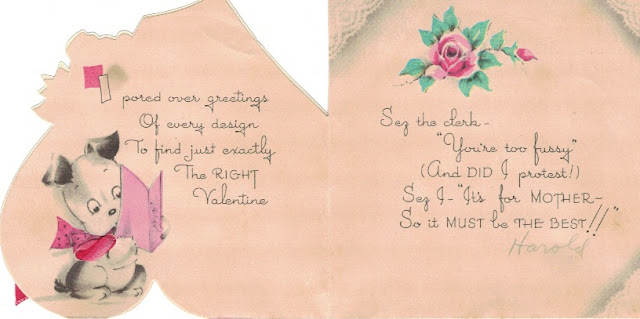 I pored over greetings
Of every design
To find just exactly
The RIGHT
Valentine
Sez the clerk-
"You're too fussy"
(And DID I protest!)
Sez I-"It's for MOTHER-
So it MUST be THE BEST!!"
Harold